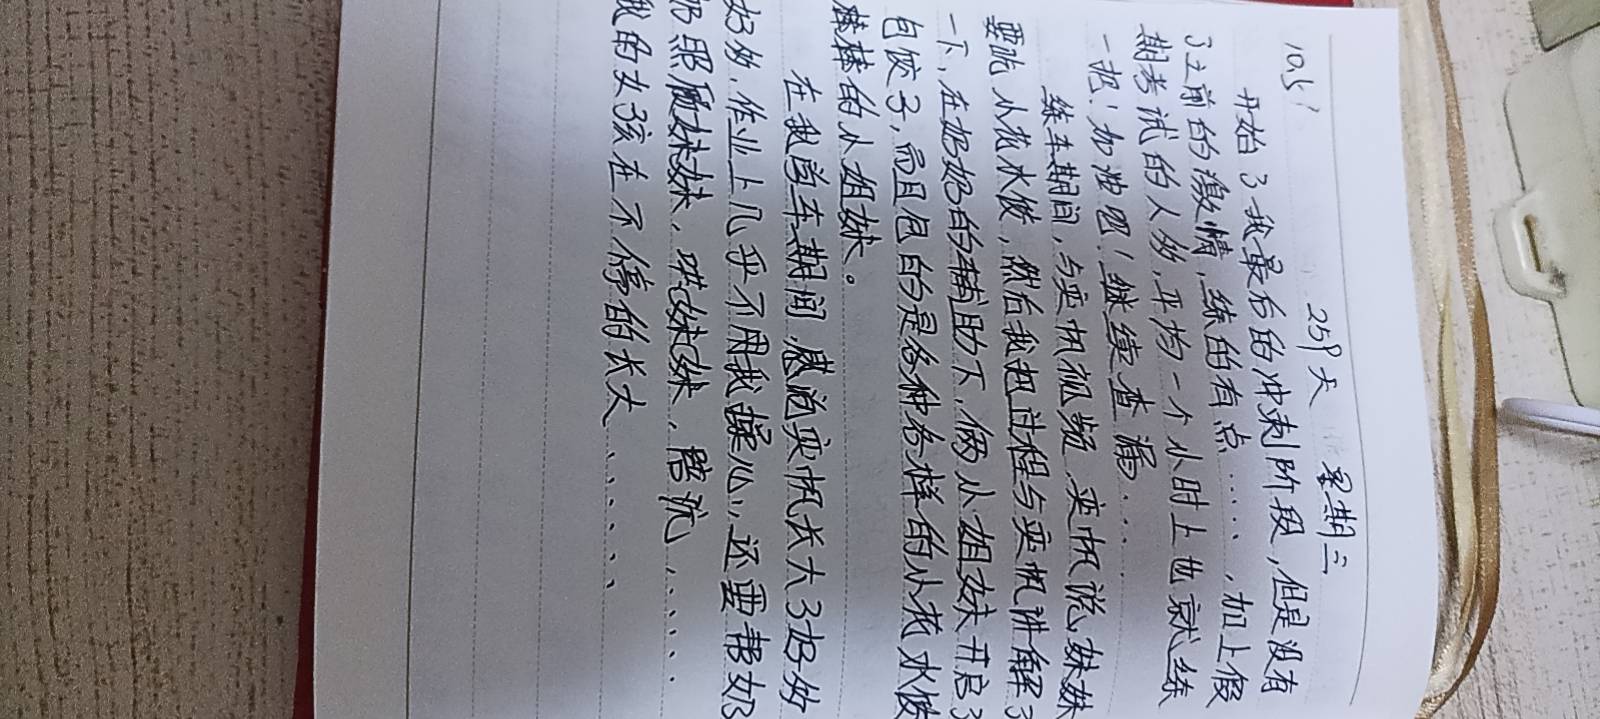 259天 星期三
开始了我最后的冲刺阶段,但是没有
了之前的激情,练的有点……,加上假
期考试的人多,平均一个小时上也就练
一把!加油吧!继续查漏……
练车期间,与奕帆视频,奕帆说,妹妹
要吃小花水饺,然后我把过程与奕帆讲解了
一下,在奶奶的辅助下,俩小姐妹开启了
包饺子,而且包的是各种各样的小花水饺
棒棒的小姐妹。
在我学车期间,感道奕帆长大了好多
好多,作业上几乎不用我操心,还要帮奶奶
照顾妹妹,哄妹妹,陪玩……
我的女孩在不停的长大……